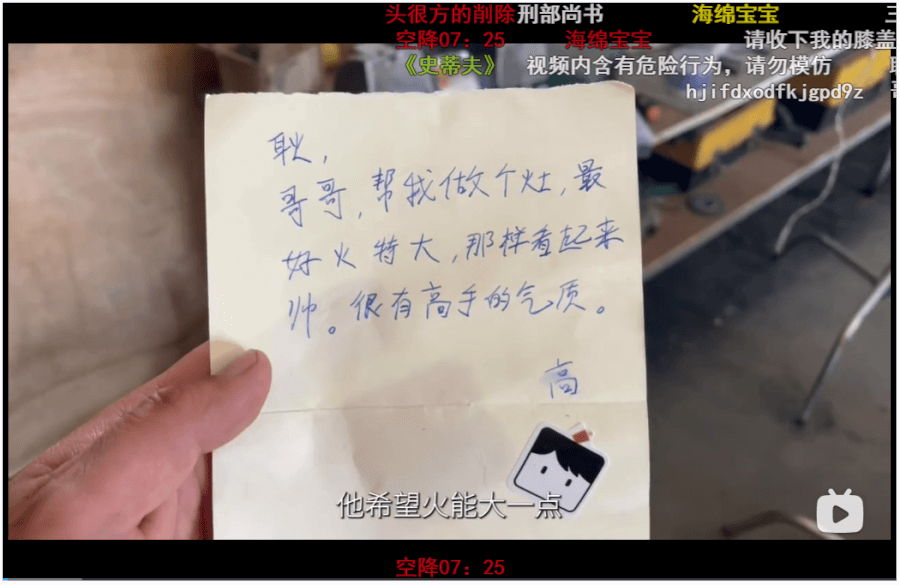 头很方的削除刑部尚书 海绵宝宝
空降07：25 海绵宝宝 请收下我的膝盖
《史蒂夫》 视频内含有危险行为，请勿模仿
hjifdxodfkjgpd9z
耿，
哥哥，帮我做个灶，最
好火特大，那样看起来
帅。很有高手的气质。
高
他希望火能大一点
空降07：25